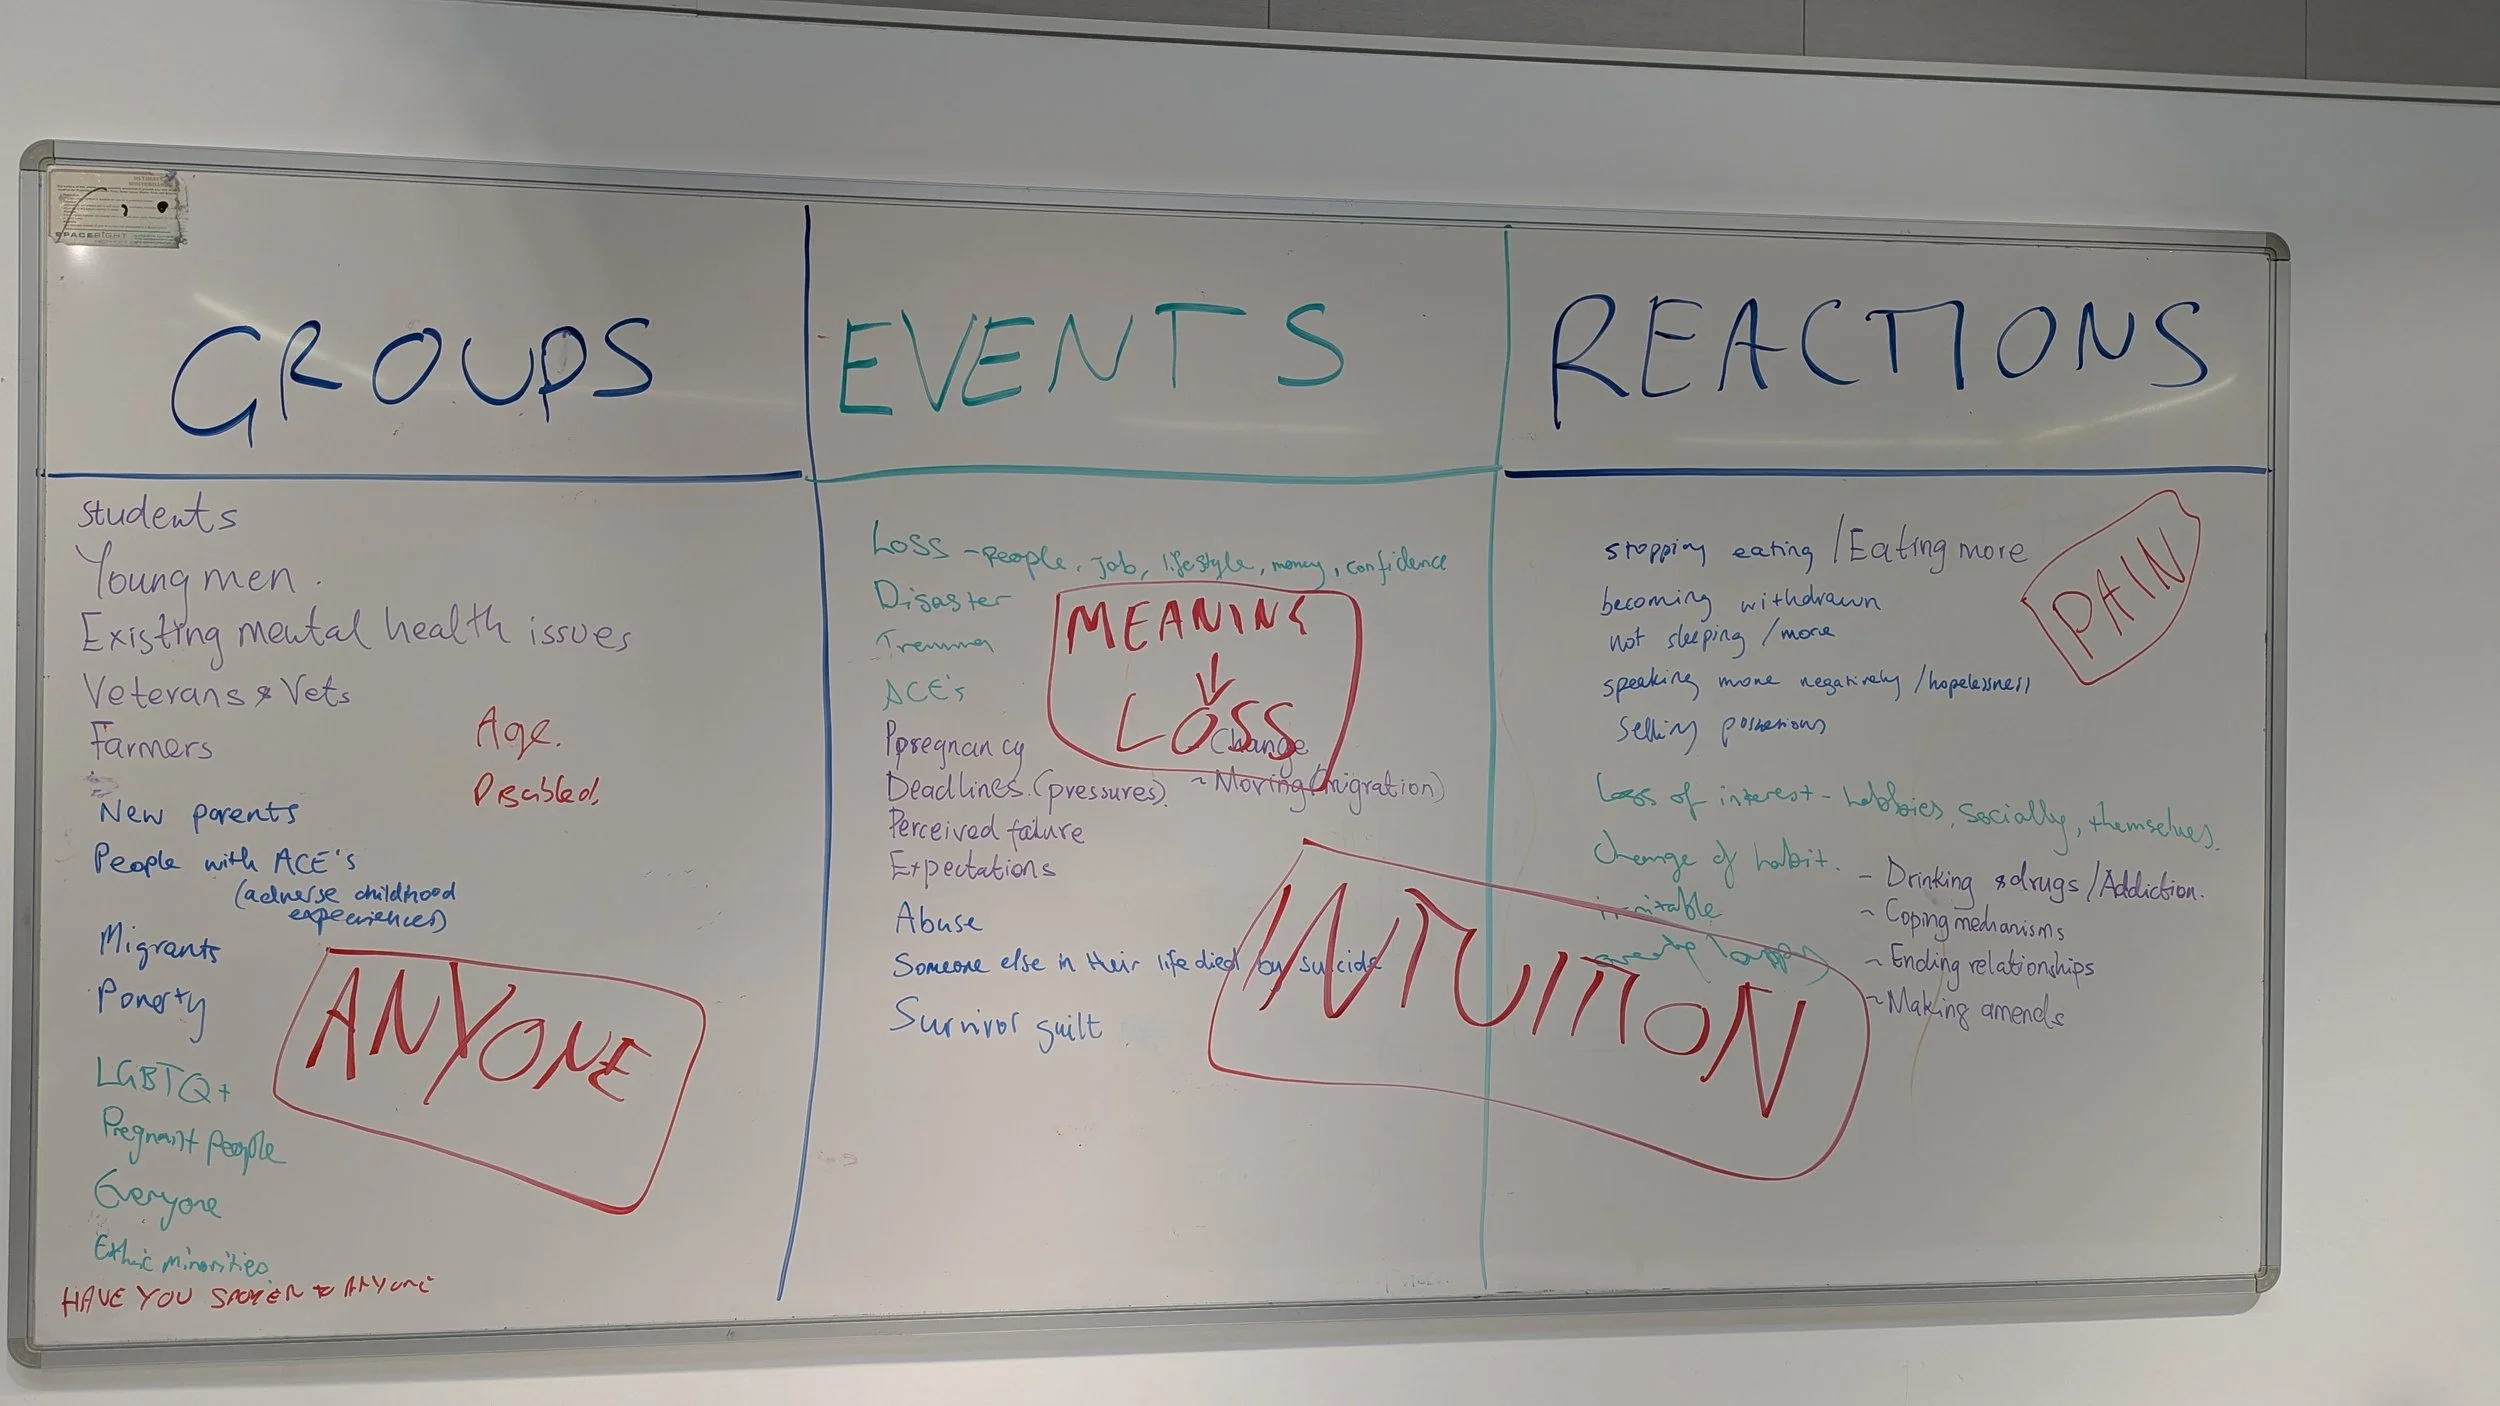 SPACERIGHT
GROUPS
students
Young men.
Existing mental health issues
Veterans & Vets
Farmers
Age.
Disabled,
New parents
People with ACE's
(adverse childhood
experiences)
Migrants
Poverty
ANYONE
LGBTQ+
Pregnant people
Everyone
Ethic minorities
HAVE YOU SPOKEN to ANYONE
EVENTS
Loss - people, job, lifestyle, money, confidence
Disaster
ACE's
MEANING
LOSS
Ppregnancy
Change
Deadlines (pressures).
~ Moving (migration)
Perceived failure
Expectations
Abuse
Someone else in their life died by suicide
Survivor guilt
INTUITION
REACTIONS
PAIN
stopping eating / Eating more
becoming withdrawn
not sleeping / more
speaking more negatively / hopelessness
Selling possessions
Loss of interest - hobbies, socially, themselves.
Change of habit.
- Drinking & drugs / Addiction.
irritable
~ Coping mechanisms
~ Ending relationships
~ Making amends